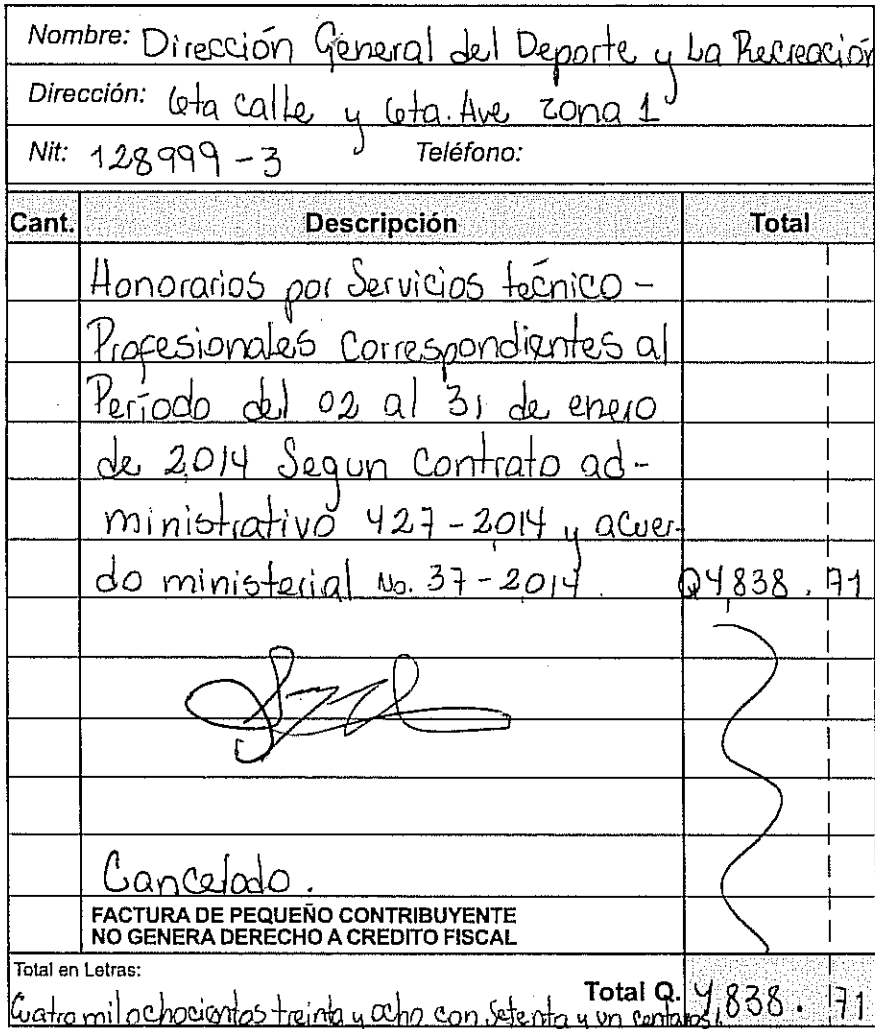 Nombre: Dirección General del Deporte y La Recreación
Dirección: 6ta calle y 6ta. Ave zona 1
Nit: 128999-3 Teléfono:
Cant. Descripción Total
Honorarios por Servicios técnico -
Profesionales Correspondientes al
Período del 02 al 31 de enero
de 2,014 Segun Contrato ad-
ministrativo 427-2,014 y acuer-
do ministerial No. 37-2,014. Q4,838.71
Cancelado.
FACTURA DE PEQUEÑO CONTRIBUYENTE
NO GENERA DERECHO A CREDITO FISCAL
Total en Letras:
Cuatro mil ochocientos treinta y ocho con setenta y un centavos. Total Q. 4,838.71